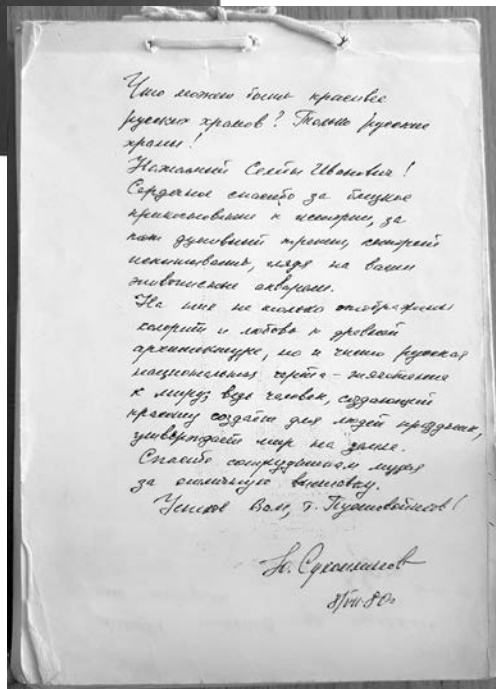 Что может быть красивее
русских храмов? Только русские
храмы!
Иванович!
Сердечное спасибо за близкое
прикосновение к истории, за
тот душевный трепет, который
испытываешь, глядя на ваши
живописные акварели.
На них не только отображены
колорит и любовь к древней
архитектуре, но и чисто русская
национальная черта -
к миру, ведь человек, создающий
красоту создаёт для людей праздник,
утверждает мир на земле.
Спасибо сотрудникам музея
за отличную выставку.
Успехов Вам, т. Пустовойтов!
Ю.
80г